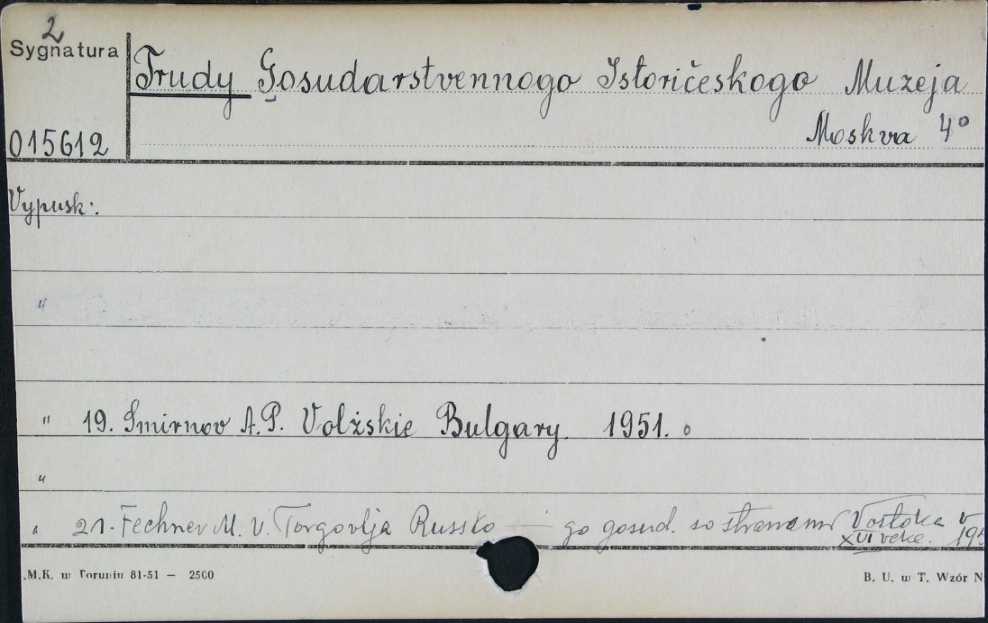 2
Sygnatura
Trudy Gosudarstvennogo Istoričeskogo Muzeja
015612
Moskva 4°
Vypusk:
"
" 19. Smirnov A.P. Volżskie Bulgary. 1951.
"
" 21. Fechner M. V. Torgovlja Russko - go gosud. so stranami Vostoka v
XVI veke.
.M.K. w Toruniu 81-51 — 2500
B. U. w T. Wzór N